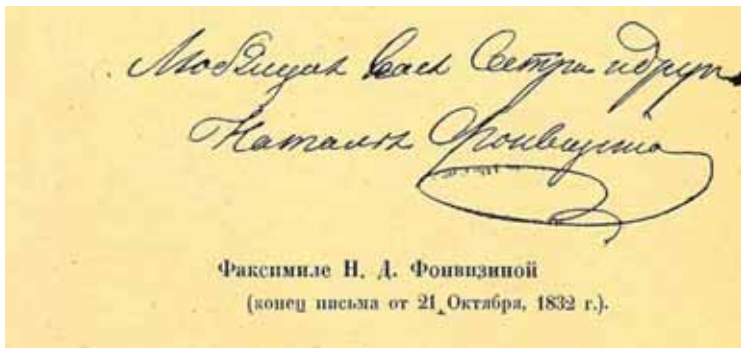 Любящая васъ Сестра и другъ
Наталья Фонвизина
Факсимиле Н. Д. Фонвизиной
(конец письма от 21 Октября, 1832 г.).